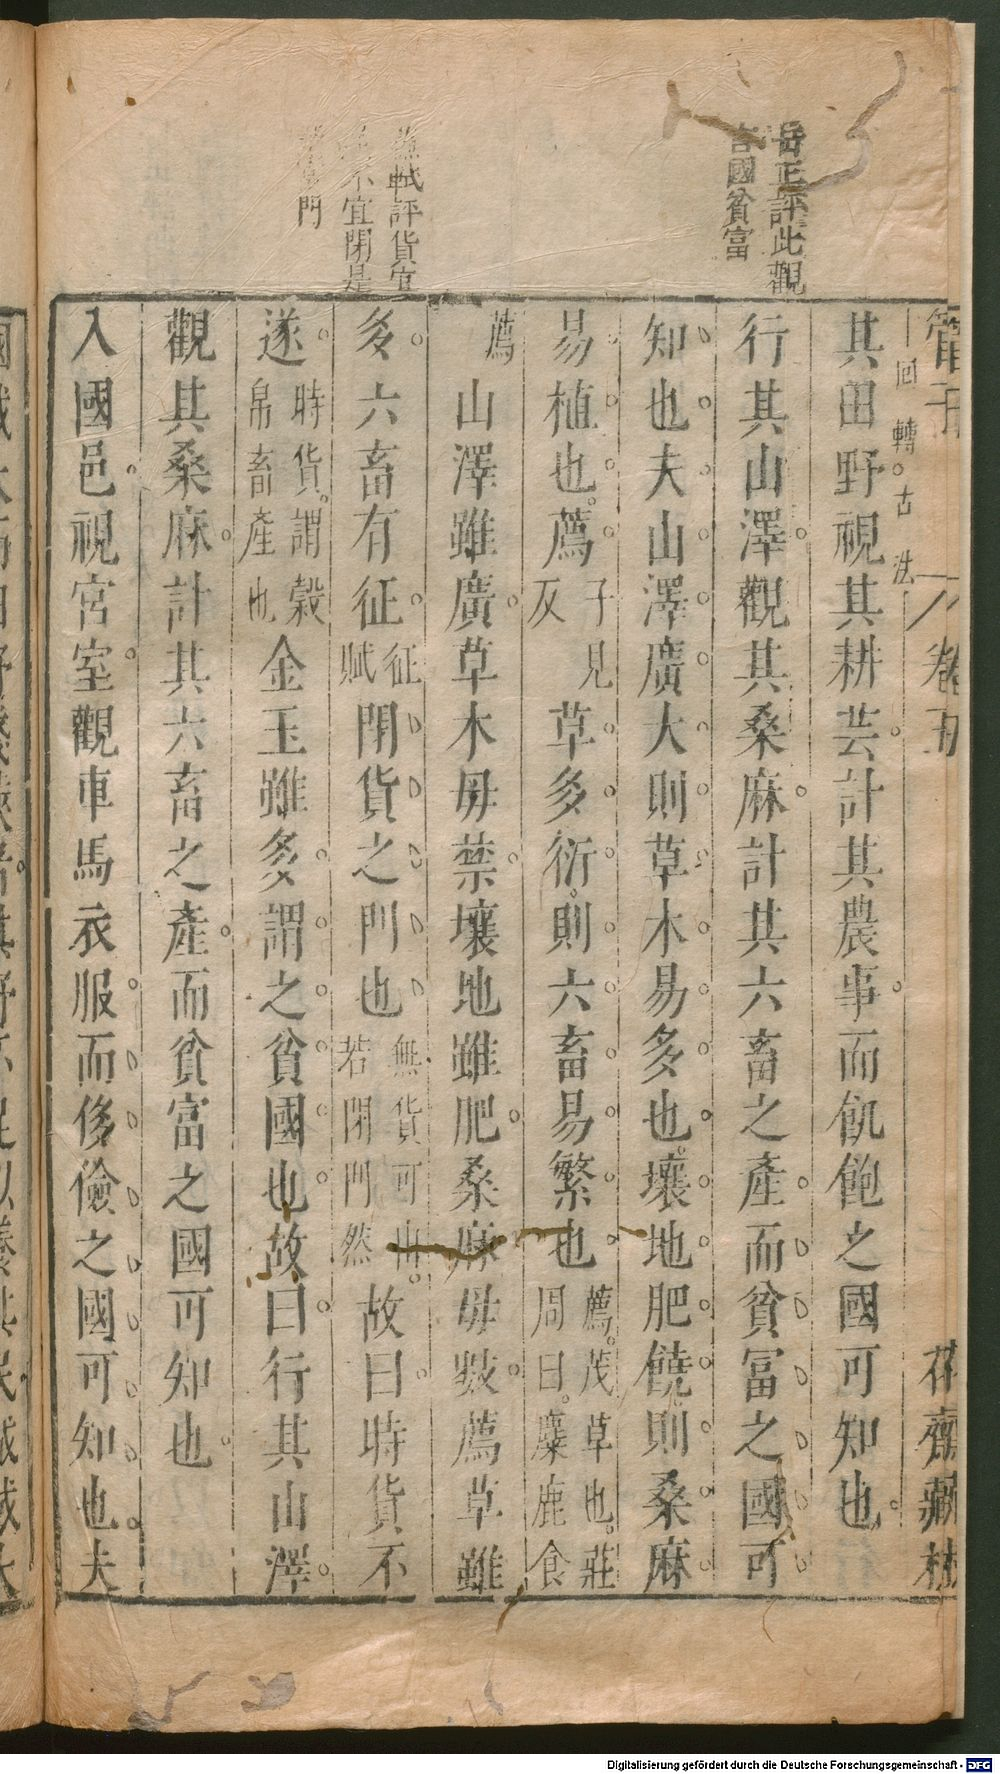 管子
卷五
花齋藏板
回轉古法
岳正評此觀
言國貧富
其田野視其耕芸計其農事而飢飽之國可知也
行其山澤觀其桑麻計其六畜之產而貧富之國可
知也夫山澤廣大則草木易多也壤地肥饒則桑麻
易植也薦子見反草多衍則六畜易繁也薦茂草也莊周曰麋鹿食
薦山澤雖廣草木毋禁壤地雖肥桑麻毋數薦草雖
評貨宜
不宜閉是
門
多六畜有征征賦閉貨之門也無貨可出若閉門然故曰時貨不
遂時貨謂穀帛畜產也金玉雖多謂之貧國也故曰行其山澤
觀其桑麻計其六畜之產而貧富之國可知也
入國邑視宮室觀車馬衣服而侈儉之國可知也夫
Digitalisierung gefördert durch die Deutsche Forschungsgemeinschaft - DFG